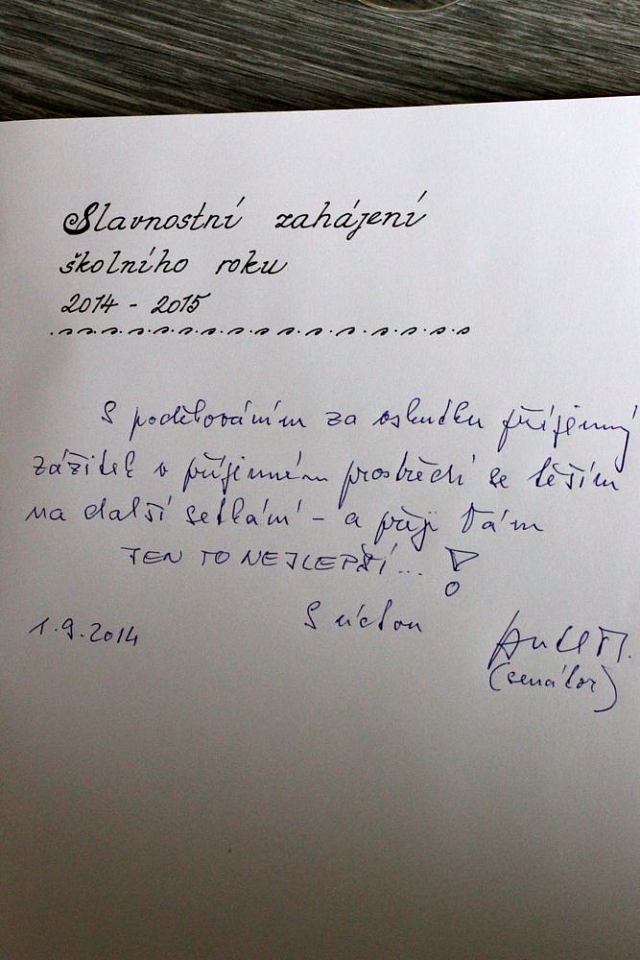 Slavnostní zahájení
školního roku
2014 - 2015
S poděkováním za příjemný
zážitek v příjemném prostředí se těším
na další setkání - a přeji Vám
JEN TO NEJLEPŠÍ... !
1.9.2014 S úctou
(senátor)